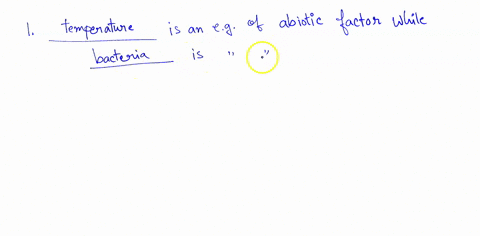 1. temperature is an e.g. of abiotic factor while
bacteria is " "